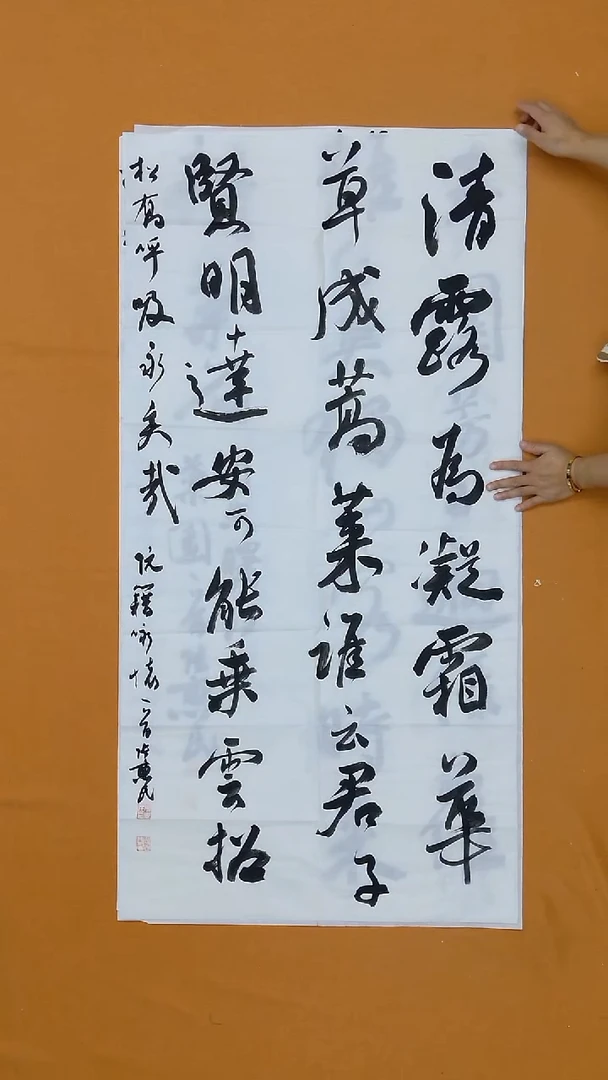 清露為凝霜華
草成蒿萊誰云君子
賢明達安可能乘雲招
松喬呼吸永矣哉 阮籍咏懷一首 張惠民